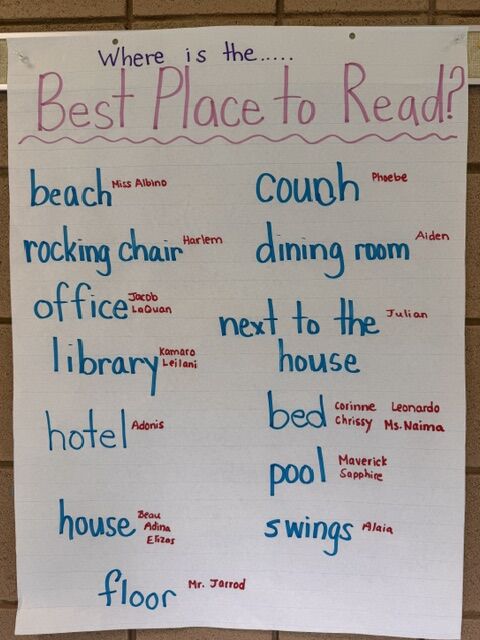 Where is the.....
Best Place to Read?
beach Miss Albino
rocking chair Harlem
office Jacob
LaQuan
library Kamaro
Leilani
hotel Adonis
house Beau
Adina
Elizas
floor Mr. Jarrod
couch Phoebe
dining room Aiden
next to the Julian
house
bed Corinne Leonardo
Chrissy Ms. Naima
pool Maverick
Sapphire
swings Alaia